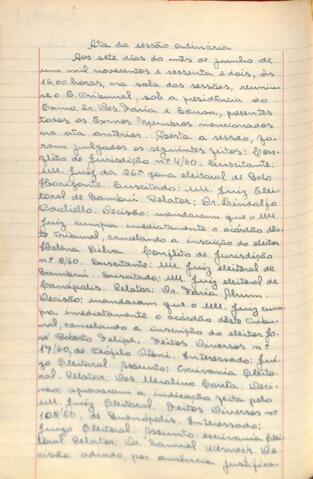 Ata da sessão ordinária
Aos sete dias do mês de junho de
um mil novecentos e sessenta e dois, às
16,00 horas, na sala das sessões, reuniu-
se o E. Tribunal, sob a presidência do
Exmo. Sr. Des. Faria e Sousa, presentes
todos os Exmos. Membros mencionados
na ata anterior. Aberta a sessão, fo-
ram julgados os seguintes feitos: Con-
flito de Jurisdição nº 4/60. Suscitante:
MM. Juiz da 26ª zona eleitoral de Belo
Horizonte. Suscitado: MM. Juiz Elei-
toral de Bambuí. Relator: Dr. Lindolfo
Decisão: mandaram que o MM.
Juiz cumpra imediatamente o acórdão des-
te Tribunal, cancelando a inscrição do eleitor
Helena Silva. Conflito de Jurisdição
nº 8/60. Suscitante: MM. Juiz eleitoral de
Bambuí. Suscitado: MM. Juiz eleitoral de
Canápolis. Relator: Dr. Faria
Decisão: mandaram que o MM. Juiz cum-
pra imediatamente o acórdão dêste Tribu-
nal, cancelando a inscrição do eleitor Jo-
sé Felipe. Feitos Diversos nº
17/60, de Teófilo Otoni. Interessado: Juí-
zo Eleitoral. Assunto: Escrivania Eleito-
ral. Relator: Des. Merolino Corrêa. Deci-
são: aprovaram a indicação feita pelo
MM. Juiz Eleitoral. Feitos Diversos nº
108/60, de Buenópolis. Interessado:
Juízo Eleitoral. Assunto: escrivania elei-
toral. Relator: Dr. Samuel Werneck. De-
cisão: adiado, por ausência justifica-